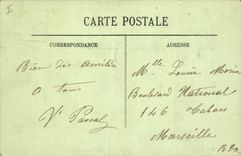 I
CARTE POSTALE
CORRESPONDANCE
ADRESSE
Bien des amitiés
a tous
Vr Pascal
Mlle Louise Morin
Boulevard National
146 Cabars
Marseille
B. Rh.